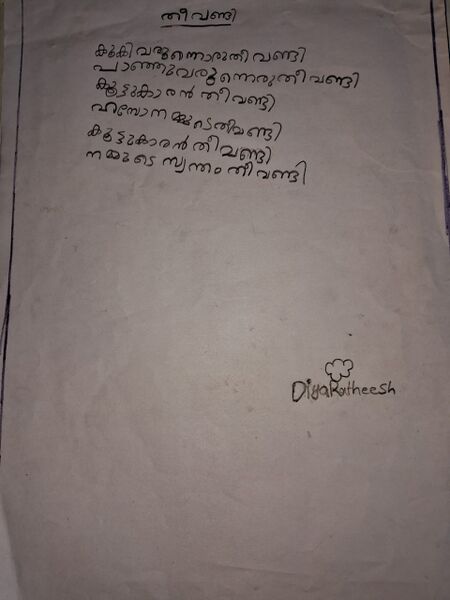 തീവണ്ടി
കൂകിവരുന്നൊരുതീവണ്ടി
പാഞ്ഞുവരുന്നൊരുതീവണ്ടി
കൂട്ടുകാരൻ തീവണ്ടി
ഹായോനമ്മുടെതീവണ്ടി
കൂട്ടുകാരൻ തീവണ്ടി
നമ്മുടെ സ്വന്തം തീവണ്ടി
Diya Ratheesh